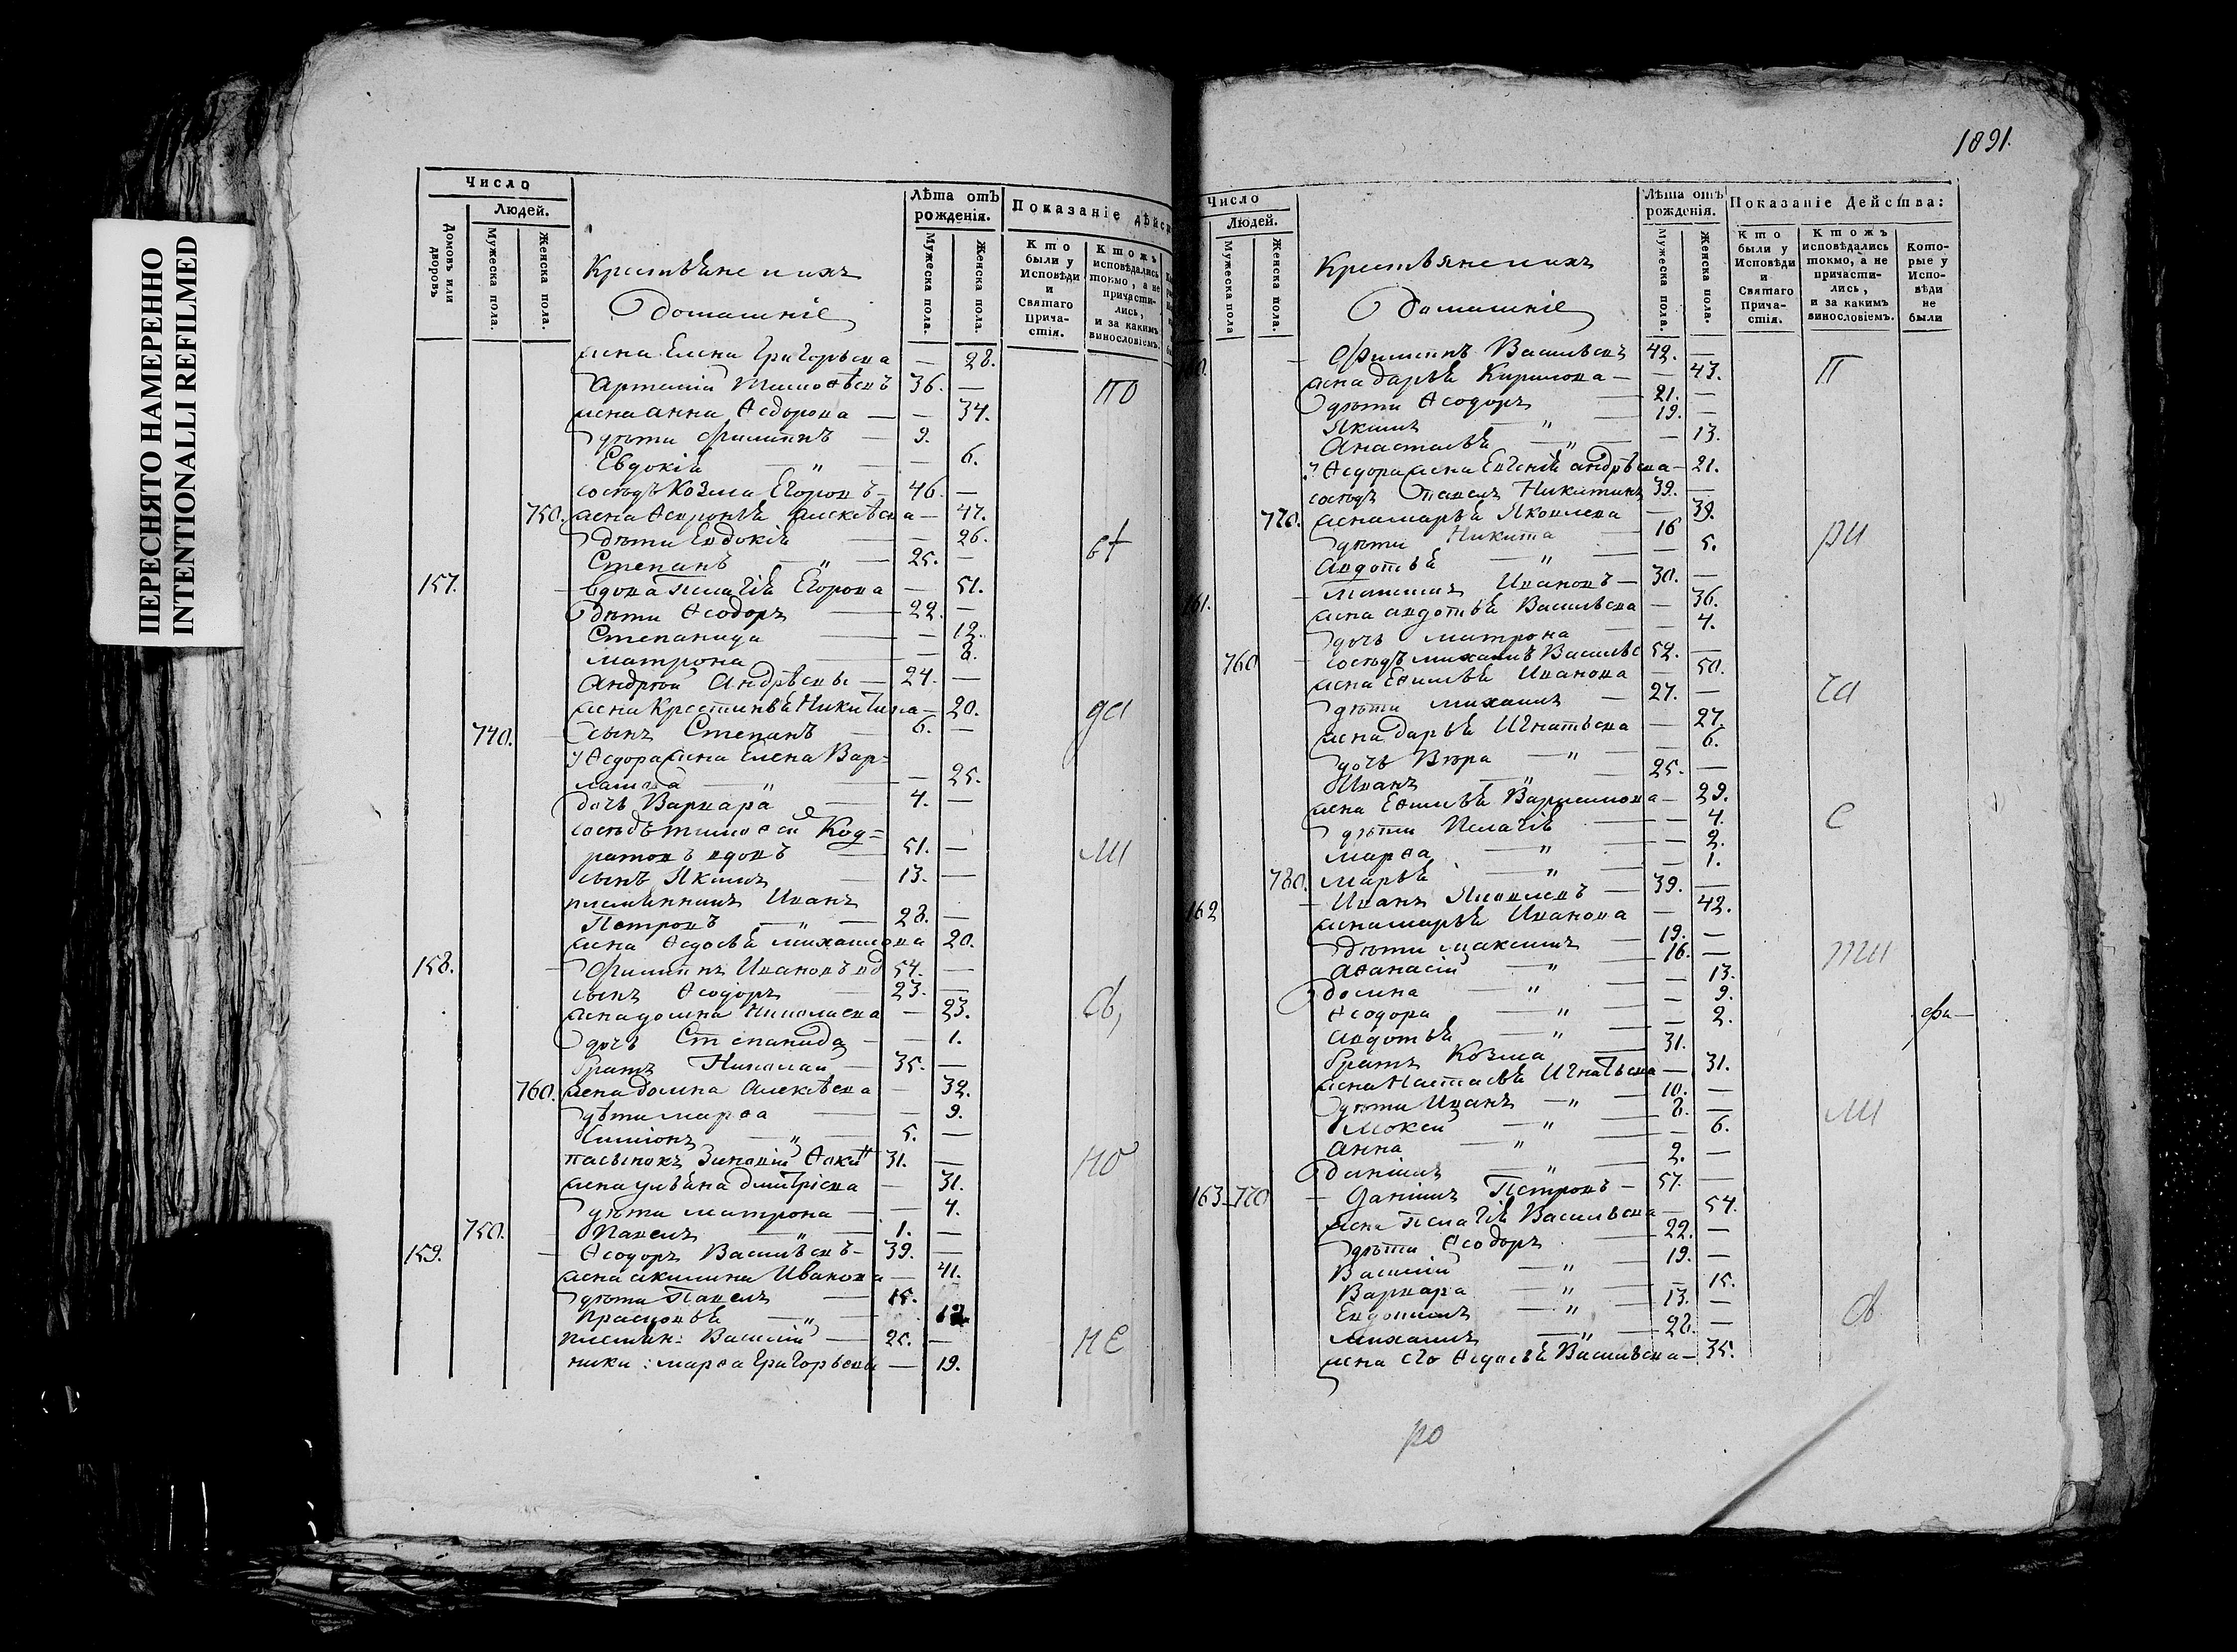 ПЕРЕСНЯТО НАМЕРЕННО
INTENTIONALLI REFILMED
Число
Людей.
Домовъ или дворовъ
Мужеска пола.
Женска пола.
Крестьѣне и ихъ
Домашніе
Лѣта отъ рожденія.
Мужеска пола.
Женска пола.
Показаніе дѣйс
Кто были у Исповѣди и Святаго Прича-стія.
Ктожъ исповѣдались токмо, а не причасти-лись, и за какимъ винословіемъ.
жена Елена Григорьева — 28.
Артемій Тимоѳѣевъ 36. — по
жена анна Ѳедорова — 34.
дѣти Филиппъ — 9.
Евдокія — „ — 6.
сосѣдъ Козма Егоровъ 46. —
750. жена Ѳевронья алексѣева — 47.
дѣти Евдокія — 26.
Степанъ — „ — 25. —
157. — вдова Пелагія Егорова — 51.
дѣти Ѳеодоръ — 22. —
Степанида — 12.
матрона — 8.
Андрей Андрѣевъ — 24. —
жена Крестинья Никитина — 20. да
740. — сынъ Степанъ — 6. —
у Ѳедора жена Елена Вар=
ламова — „ — 25.
дочь Варвара — 4. —
сосѣдъ тимоѳей Код=
ратовъ вдовъ — 51. — ми
сынъ Якимъ — 13. —
племянникъ Иванъ
Петровъ — „ — 28. —
жена Ѳедосья михаилова 20.
158. — Филиппъ Ивановъ вд 54. —
сынъ Ѳеодоръ — 23. —
жена домна Николаева — 23. св,
дочь Степанида — 1.
братъ Николай — 35. —
760. жена домна Алексѣева — 32.
дѣти марѳа — 9.
Симіонъ — „ — 5. —
пасынокъ Зиновій Ѳоки 31. — но
жена ульяна дмитріева — 31.
дѣти матрона — 4.
750. Павелъ — „ — 1. —
159. — Ѳеодоръ Васильевъ — 39. —
жена акилина Иванова — 41.
дѣти Павелъ — 15.
Прасковья — „ —
племян: Василій — 20. — не
ники: марѳа Григорьева — 19.
1891.
Число
Людей.
Мужеска пола
Женска пола.
Крестьяне и ихъ
Домашніе
Лѣта отъ рожденія.
Мужеска пола.
Женска пола.
Показаніе Действа:
Кто были у Исповѣди и Святаго Прича-стія.
Ктожъ исповѣдались токмо, а не причасти-лись, и за какимъ винословіемъ.
Кото-рые у Испо-вѣди не были
— Филиппъ Васильевъ 42. — П
жена дарья Кирилова — 43.
дѣти Ѳеодоръ — 21. —
Якимъ — „ 19. —
Анастасья — „ — 13.
у Ѳедора жена Евгенія андрѣева — 21.
сосѣдъ Павелъ Никитинъ 39. —
770. жена марья Яковлева — 39.
дѣти Никита — 16 ри
Авдотья — „ — 5.
161. — Максимъ Ивановъ — 30. —
жена авдотья Васильева — 36.
дочь матрона — 4.
760 — сосѣдъ михаилъ Васильев 52. —
жена Еѳимья Иванова — 50.
дѣти михаилъ — 27. — ча
жена дарья Игнатьева — 27.
дочь Вѣра — „ — 6.
Иванъ — „ — 25. —
жена Еѳимья Варламова — 29.
дѣти Пелагія — 4. с
марѳа — „ — 2.
780. марья — „ — 1.
162 — Иванъ Яковлевъ — 39. —
жена марья Иванова — 42.
дѣти максимъ — 19. —
Аѳанасій — „ — 16. — ти
домна — „ — 13.
Ѳеодора — „ — 9.
авдотья — „ — 2. фи—
братъ Козма — 31.
жена Настасья Игнатьева — 31.
дѣти Иванъ — „ — 10. —
Мокей — „ — 8. — ми
анна — „ — 6.
даніилъ — „ — 2. —
163 — 770 — Даніилъ Петровъ — 57. —
жена Пелагія Васильева — 54.
дѣти Ѳеодоръ — 22. —
Василій — „ — 19. —
Варвара — „ — 15.
Евдокимъ — „ — 13. —
михаилъ — „ — 28. — св
жена его Ѳедосья Васильева — 35.
ро